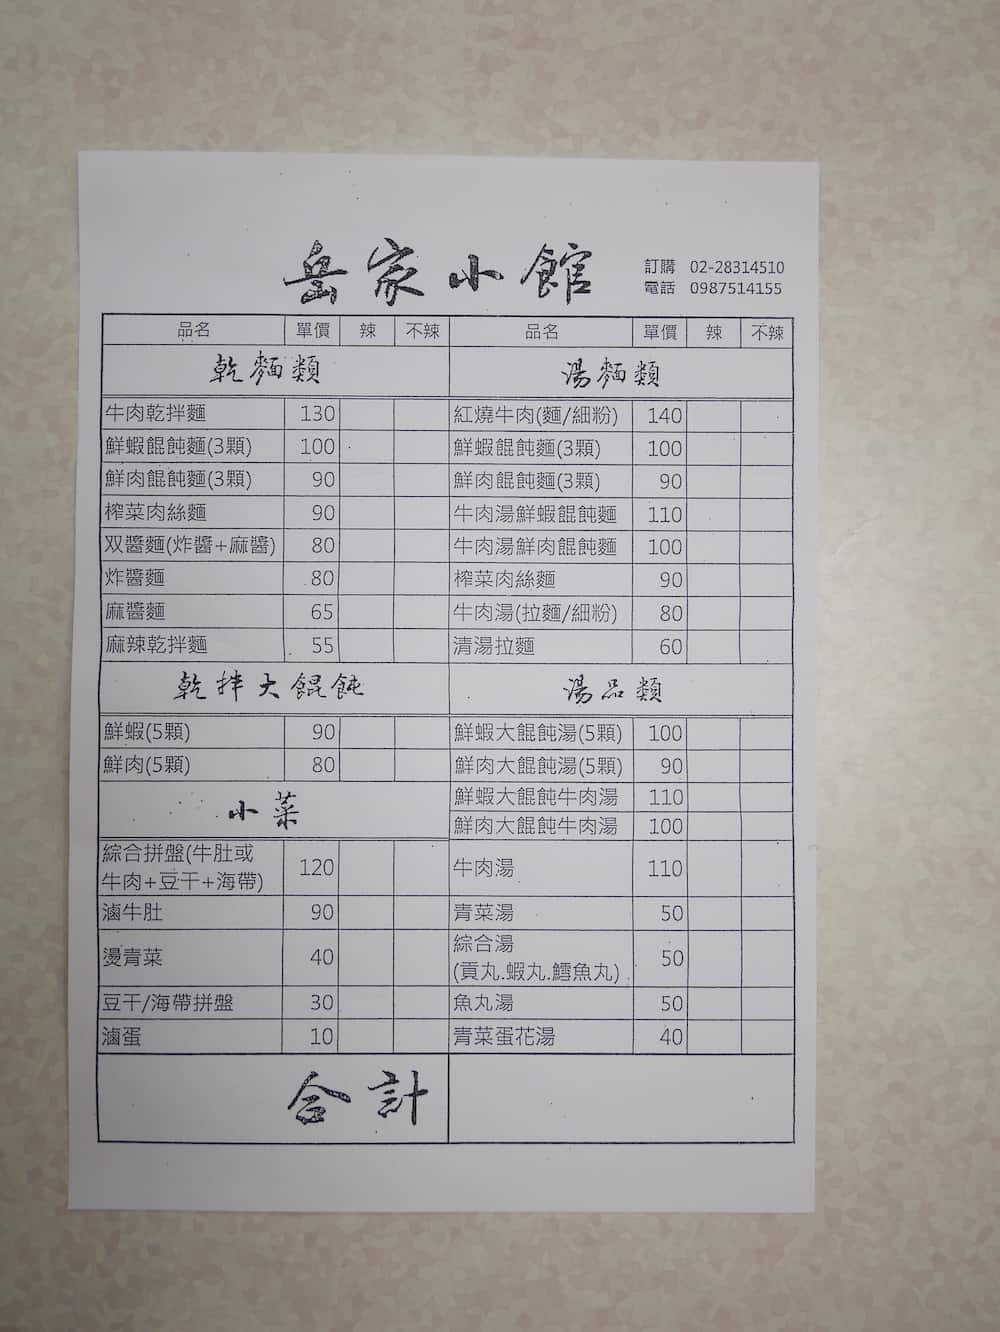 岳家小館
訂購 02-28314510
電話 0987514155
品名 單價 辣 不辣 品名 單價 辣 不辣
乾麵類
牛肉乾拌麵 130
鮮蝦餛飩麵(3顆) 100
鮮肉餛飩麵(3顆) 90
榨菜肉絲麵 90
双醬麵(炸醬+麻醬) 80
炸醬麵 80
麻醬麵 65
麻辣乾拌麵 55
乾拌大餛飩
鮮蝦(5顆) 90
鮮肉(5顆) 80
小菜
綜合拼盤(牛肚或
牛肉+豆干+海帶) 120
滷牛肚 90
燙青菜 40
豆干/海帶拼盤 30
滷蛋 10
湯麵類
紅燒牛肉(麵/細粉) 140
鮮蝦餛飩麵(3顆) 100
鮮肉餛飩麵(3顆) 90
牛肉湯鮮蝦餛飩麵 110
牛肉湯鮮肉餛飩麵 100
榨菜肉絲麵 90
牛肉湯(拉麵/細粉) 80
清湯拉麵 60
湯品類
鮮蝦大餛飩湯(5顆) 100
鮮肉大餛飩湯(5顆) 90
鮮蝦大餛飩牛肉湯 110
鮮肉大餛飩牛肉湯 100
牛肉湯 110
青菜湯 50
綜合湯
(貢丸.蝦丸.鱈魚丸) 50
魚丸湯 50
青菜蛋花湯 40
合計